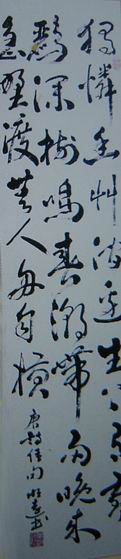 獨憐幽艸澗邊生上有黃
鸝深樹鳴春潮帶雨晚来
急野渡無人舟自橫
唐詩佳句 書